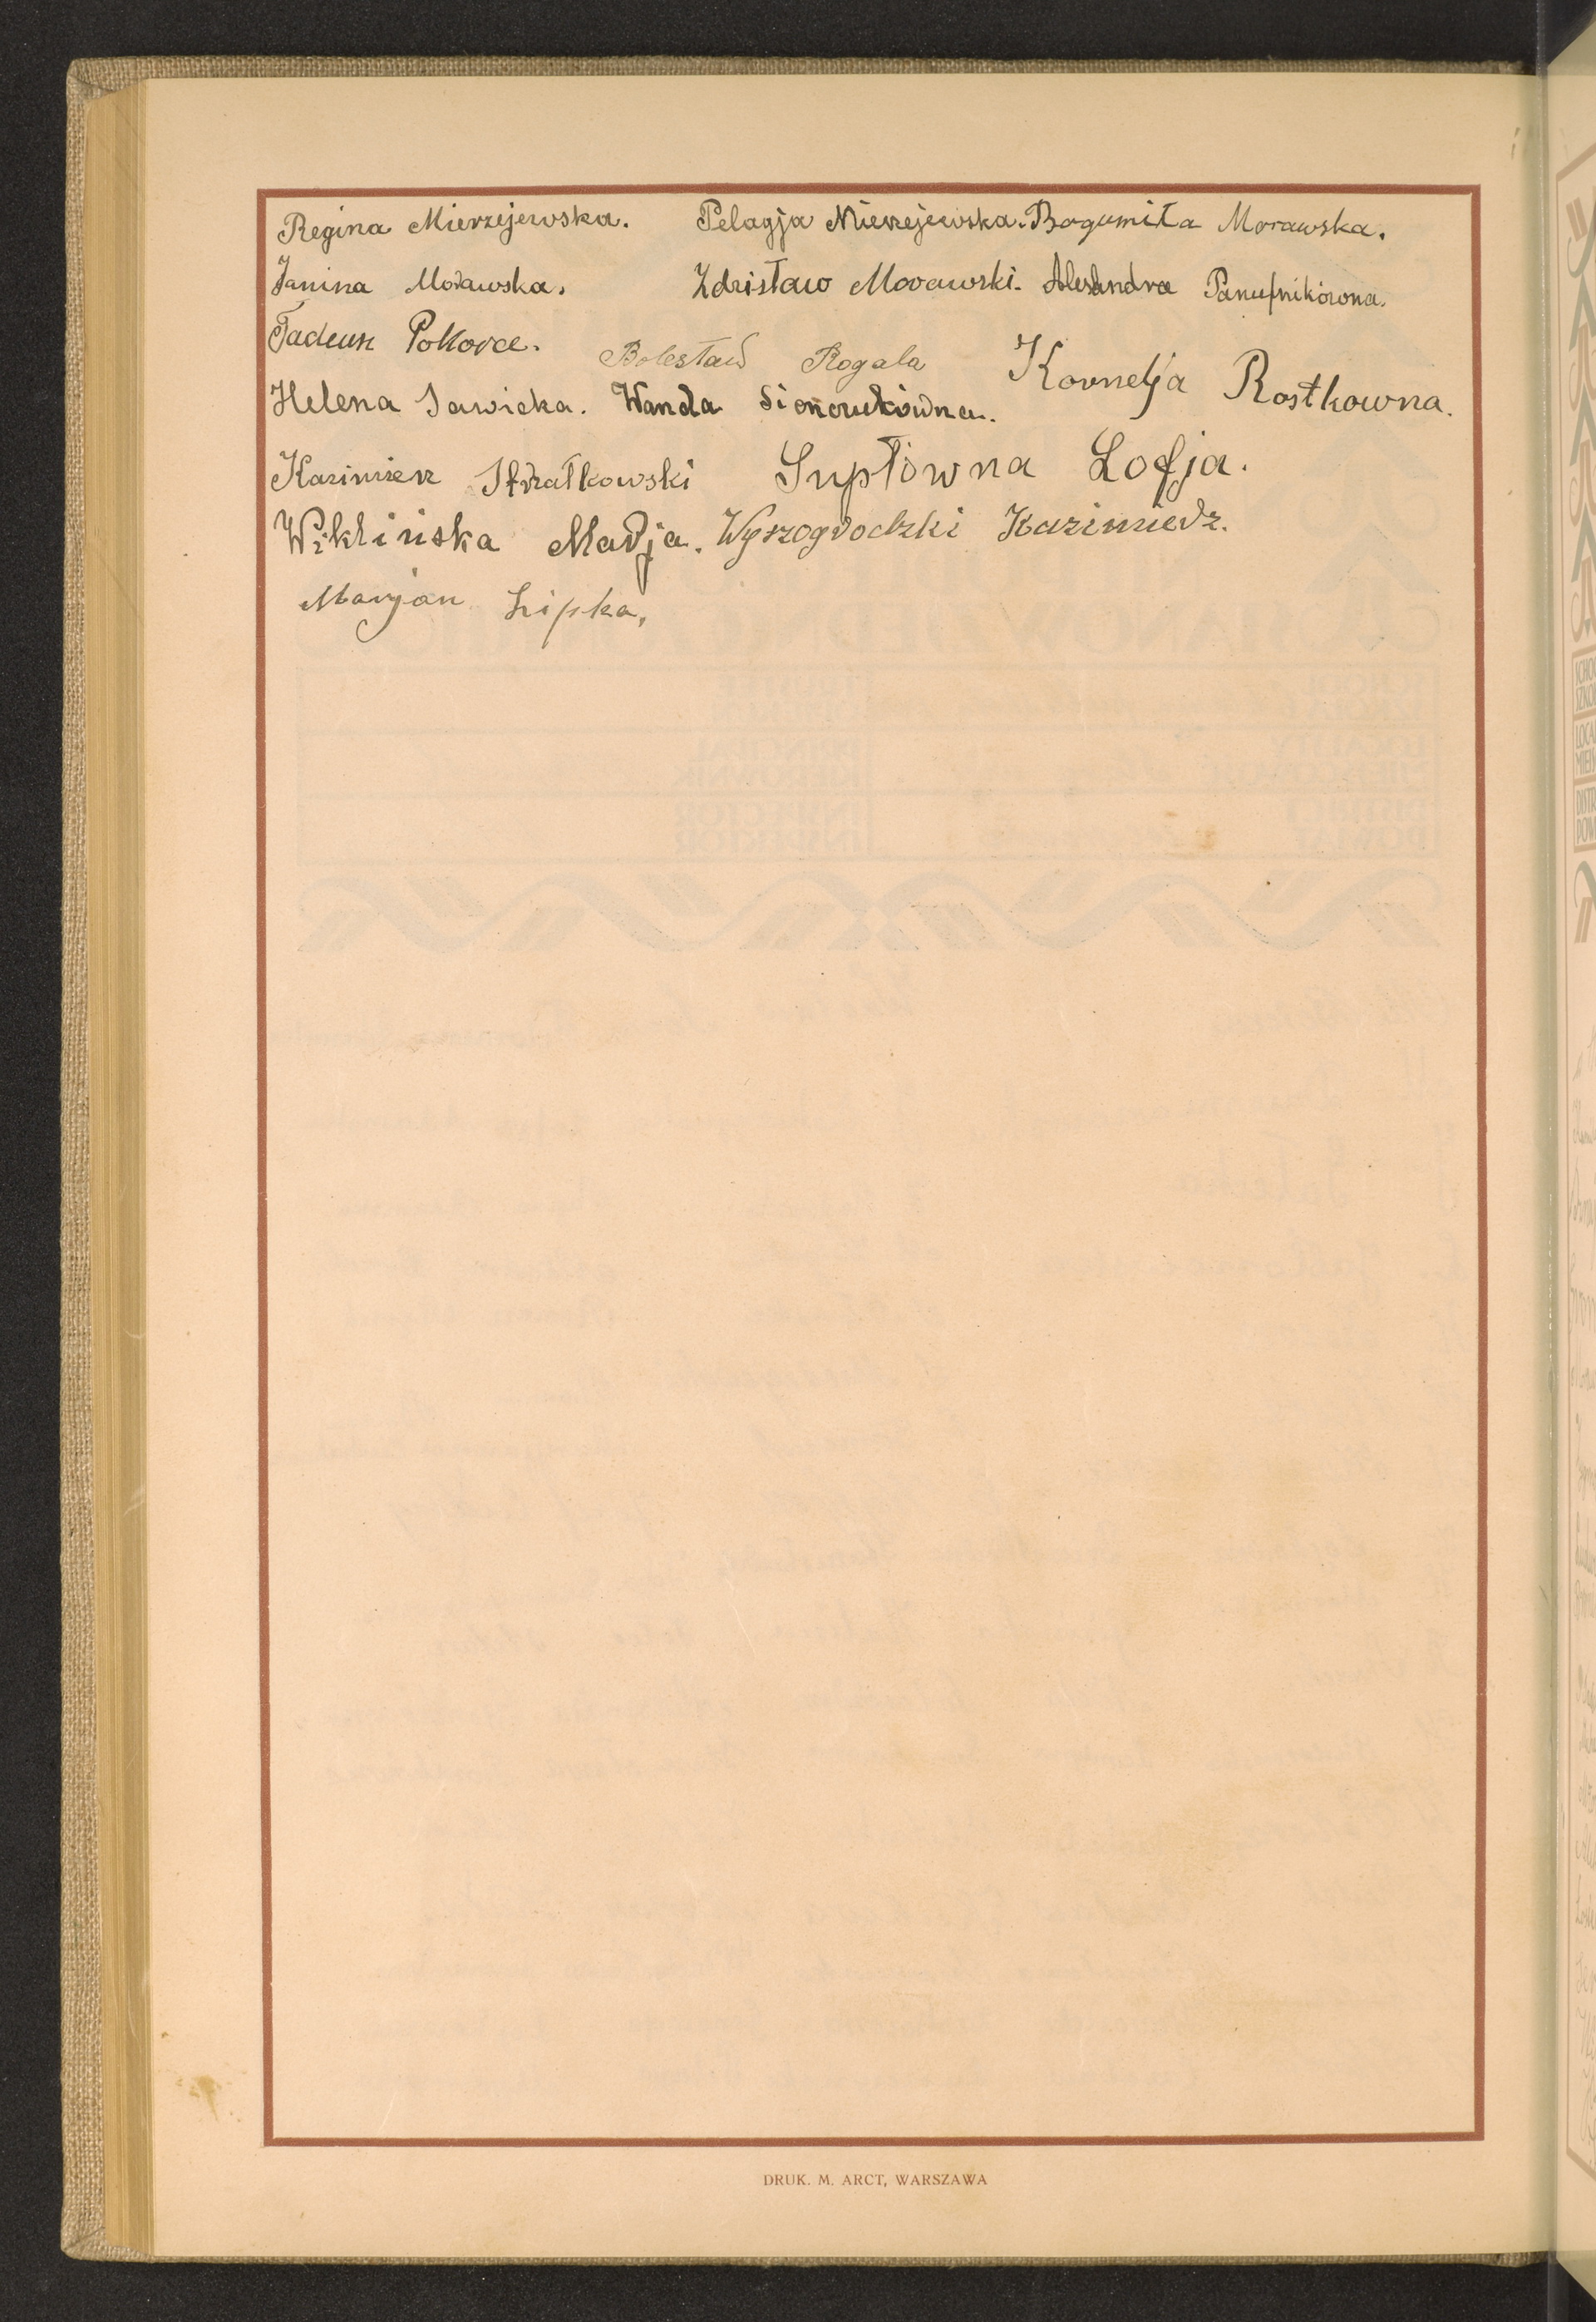 Regina Mierzejewska. Pelagja Mierzejewska. Bogumiła Morawska.
Janina Morawska. Zdzisław Morawski. Aleksandra Panufnikówna.
Tadeusz Pokorce. Bolesław Rogala Kornelja Rostkowna.
Helena Sawicka. Wanda
Kazimierz Strzałkowski Supłówna Zofja.
Wiklińska Marja. Wyszogrodzki Kazimierz.
Marjan Lipka,
DRUK. M. ARCT, WARSZAWA